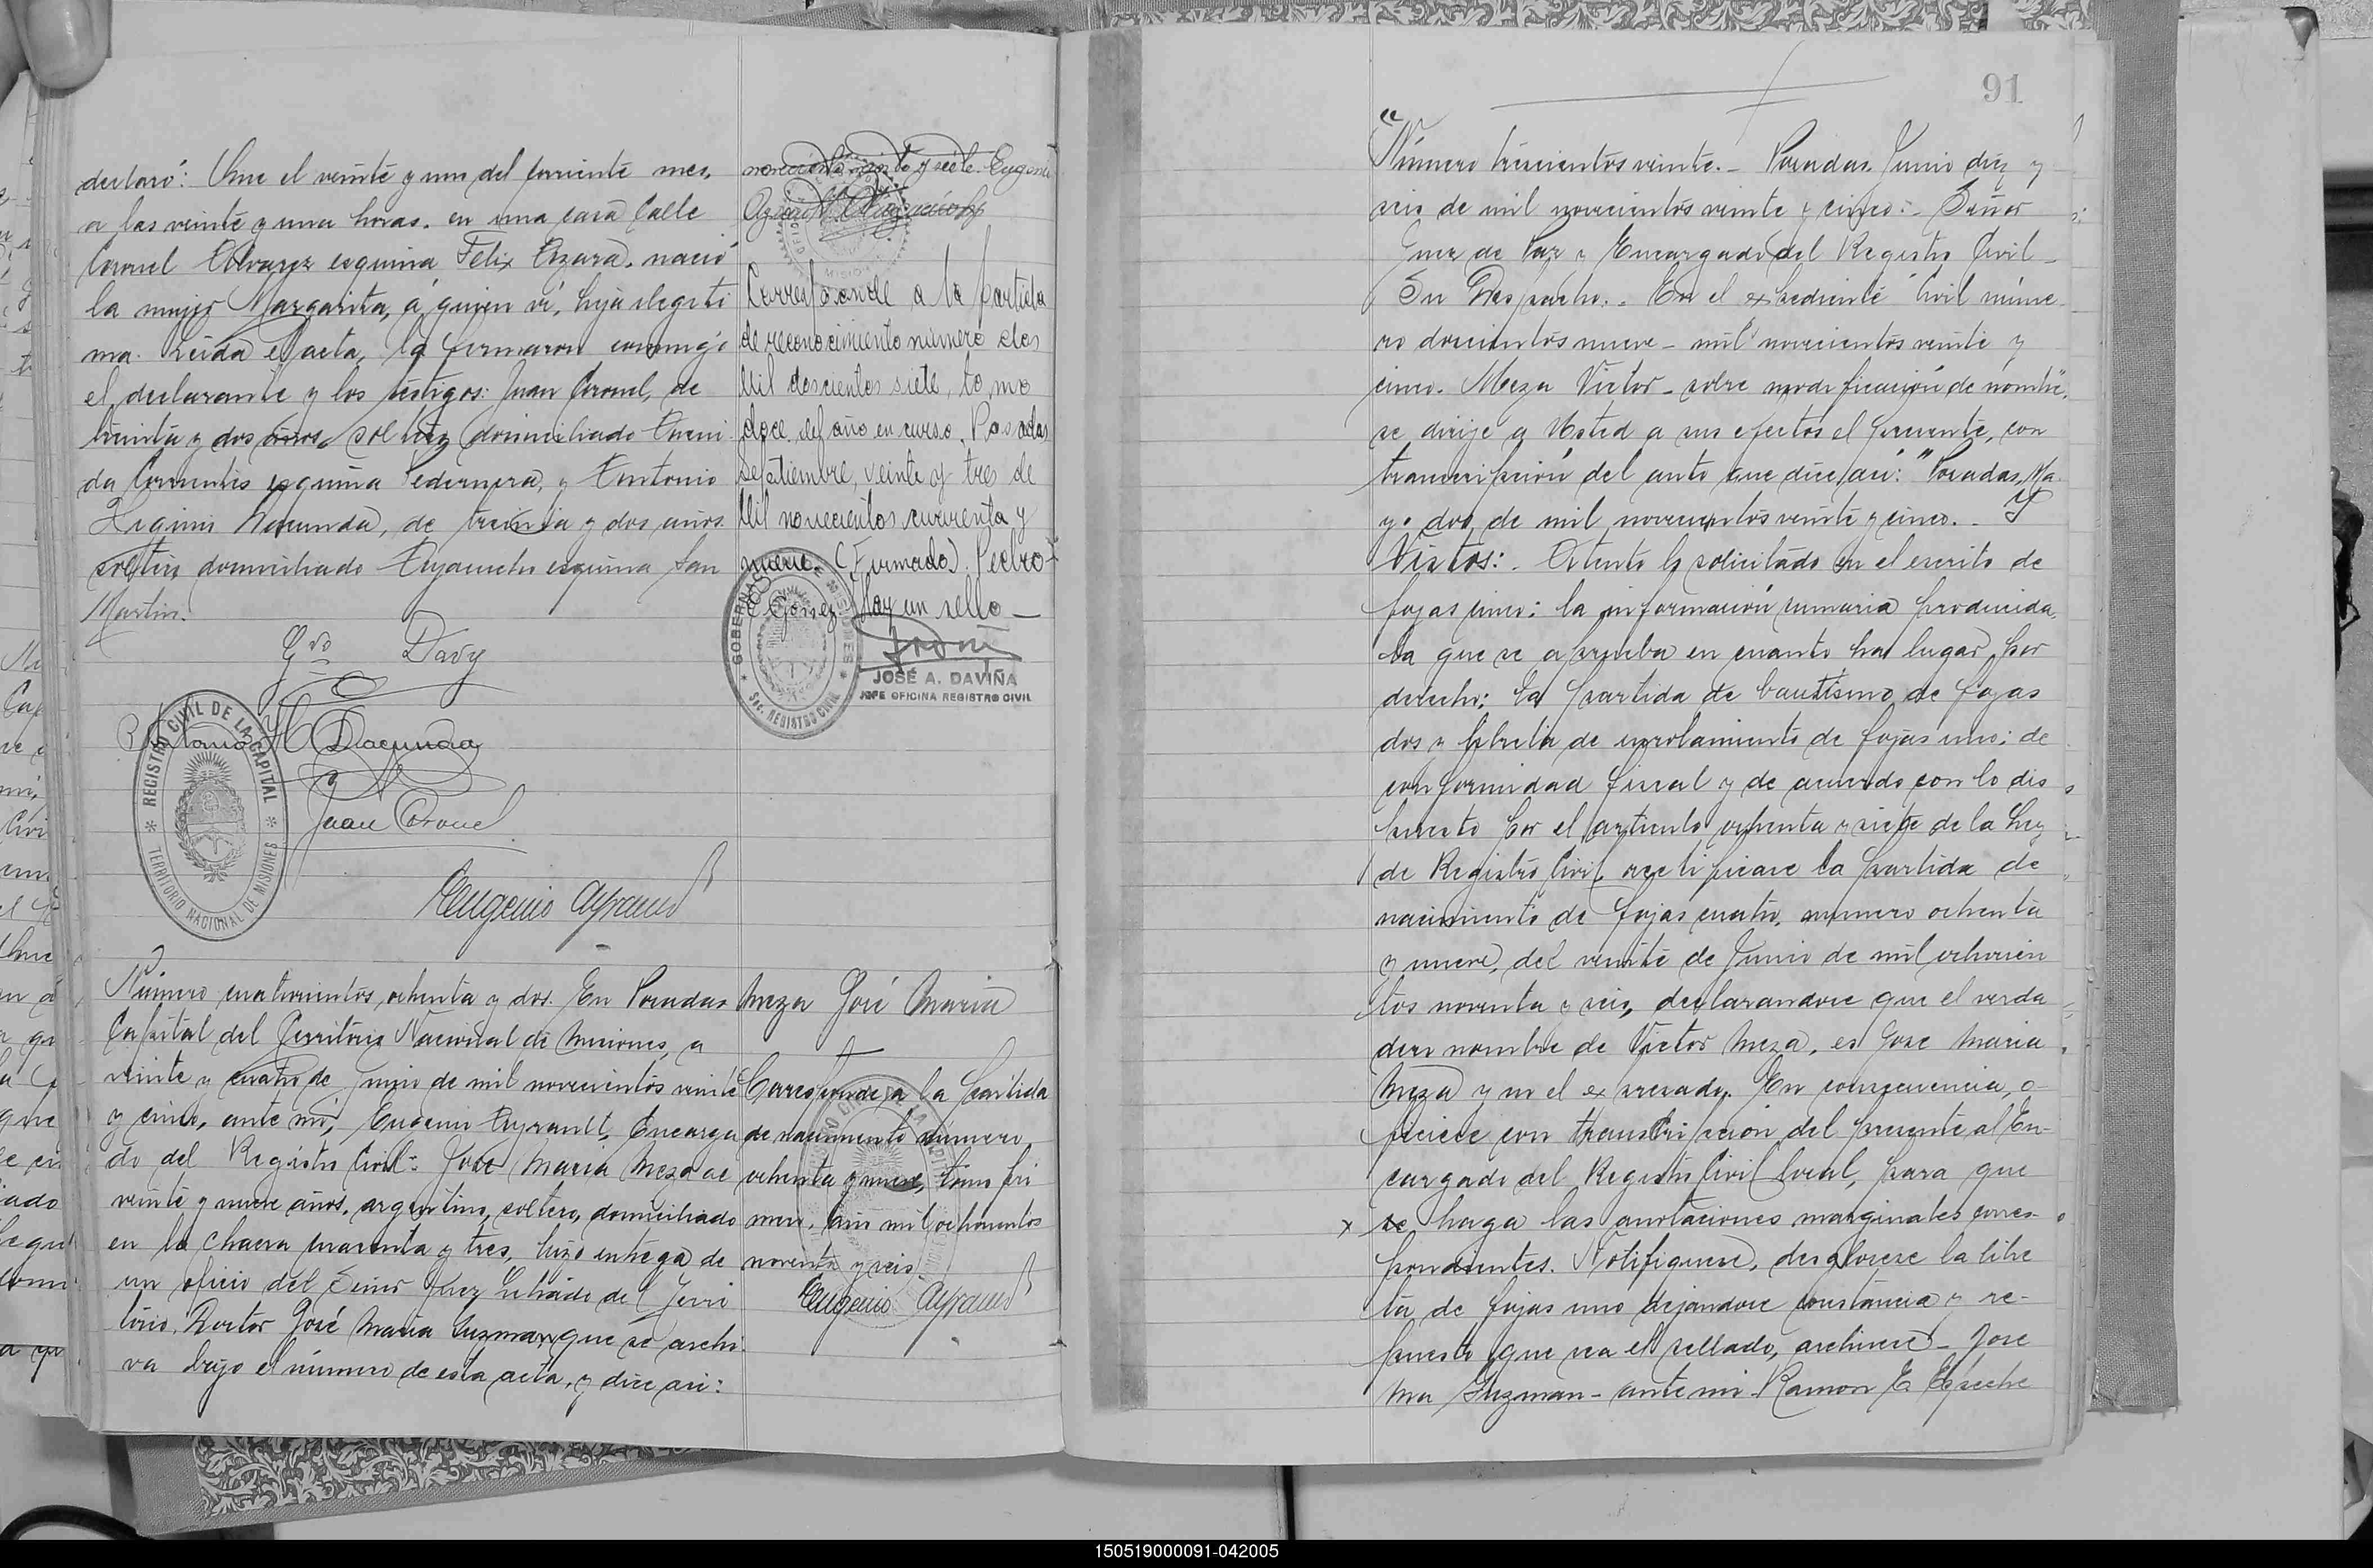 declaró: Que el veinte y uno del corriente mes,
a las veinte y una horas, en una casa Calle
Coronel Alvarez esquina Felix Azara, nació
la mujer Margarita, á quien ví, hija ilegiti
ma. Leida el acta, la firmaron conmigo
el declarante y los testigos: Juan Coronel, de
treinta y dos años, soltero, domiciliado Aveni
da Corrientes esquina Pedernera, y Antonio
Higinio Dacunda, de treinta y dos años
soltero domiciliado Ayacucho esquina San
Martin.
Gvo Davy
Antonio H Dacunda
Juan Coronel
Eugenio Ayrault
REGISTRO CIVIL DE LA CAPITAL
* TERRITORIO NACIONAL DE MISIONES *
novecientos veinte y siete. Eugenio
Corresponde a la partida
de reconocimiento número dos
mil doscientos siete, tomo
doce del año en curso. Posadas
Septiembre, veinte y tres de
mil novecientos cuarenta y
nueve. (Firmado). Pedro
Gomez. Hay un sello —
GOBERNACION DE MISIONES
* Sec. REGISTRO CIVIL *
JOSÉ A. DAVIÑA
JEFE OFICINA REGISTRO CIVIL
Número cuatrocientos ochenta y dos. En Posadas
Capital del Territorio Nacional de Misiones, a
veinte y cuatro de Junio de mil novecientos veinte
y cinco, ante mí, Eugenio Ayrault, Encarga
do del Registro Civil: José María Meza de
veinte y nueve años, argentino, soltero, domiciliado
en la chacra cuarenta y tres, hizo entrega de
un oficio del Señor Juez Letrado del Terri
torio, Doctor José María Guzman, que se archi
va bajo el número de esta acta, y dice asi:
Meza José Maria
Corresponde a la partida
de nacimiento número
ochenta y nueve, tomo pri
mero, año mil ochocientos
noventa y seis
Eugenio Ayrault
91
"Número trescientos veinte.- Posadas, Junio diez y
seis de mil novecientos veinte y cinco:- Señor
Juez de Paz y Encargado del Registro Civil -
Su Despacho.- En el expediente Civil núme
ro doscientos nueve - mil novecientos veinte y
cinco. Meza Victor - sobre modificación de nombre,
se dirije a Usted a sus efectos el presente, con
transcripción del auto que dice así: "Posadas, Ma
yo dos de mil novecientos veinte y cinco.- Y
Vistos:- Atento lo solicitado en el escrito de
fojas cinco; la información sumaria producida,
la que se aprueba en cuanto ha lugar por
derecho; la partida de bautismo de fojas
dos y libreta de enrolamiento de fojas uno; de
conformidad fiscal y de acuerdo con lo dis
puesto por el artículo ochenta y siete de la Ley
de Registro Civil, rectificase la partida de
nacimiento de fojas cuatro, número ochenta
y nueve, del veinte de Junio de mil ochocien
tos noventa y seis, declarandose que el verda
dero nombre de Victor Meza, es Jose Maria
Meza y no el expresado. En consecuencia, o-
ficiese con transcripcion del presente al En-
cargado del Registro Civil local, para que
x se haga las anotaciones marginales corres-
pondientes. Notifiquese, desglosese la libre
ta de fojas uno dejandose constancia y re-
puesto que sea el sellado, archivese - Jose
Ma Guzman - ante mi - Ramon E
150519000091-042005